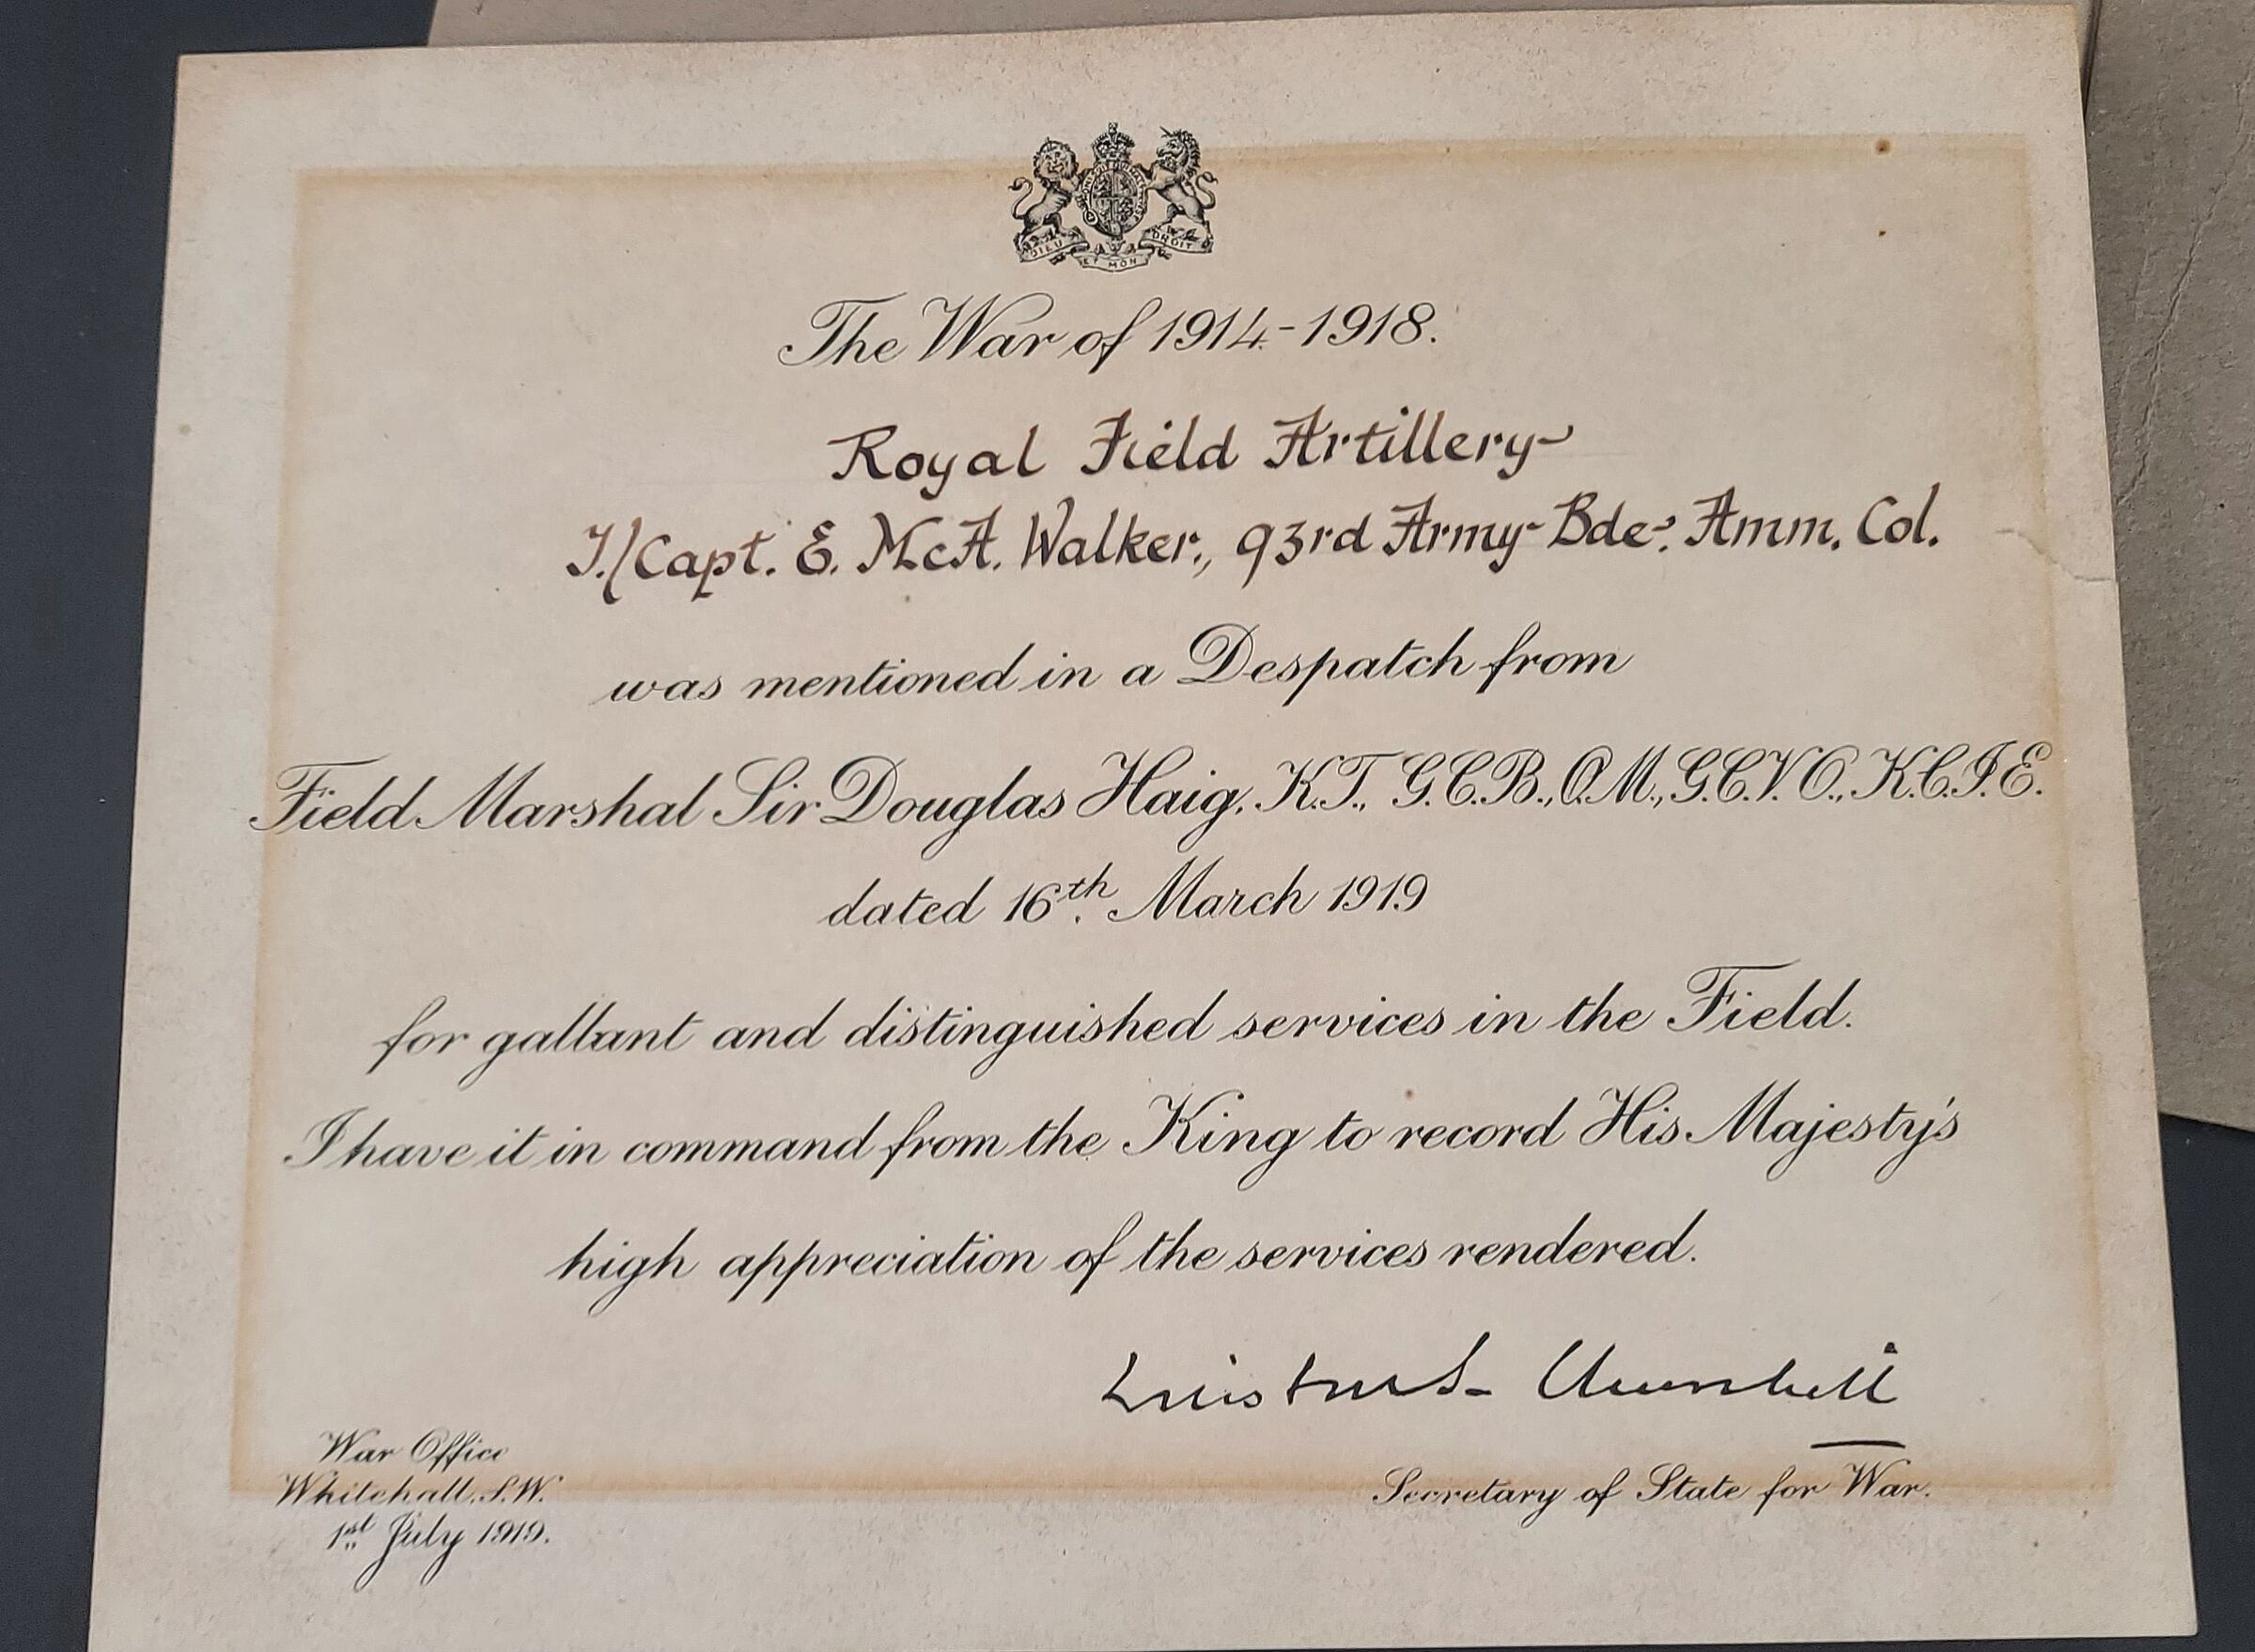 DIEU ET MON DROIT
The War of 1914-1918.
Royal Field Artillery
T./Capt. E. McA. Walker, 93rd Army Bde. Amm. Col.
was mentioned in a Despatch from
Field Marshal Sir Douglas Haig, K.T., G.C.B., O.M., G.C.V.O., K.C.I.E.
dated 16th. March 1919
for gallant and distinguished services in the Field.
I have it in command from the King to record His Majesty's
high appreciation of the services rendered.
Winston S. Churchill
Secretary of State for War.
War Office
Whitehall, S.W.
1st. July 1919.